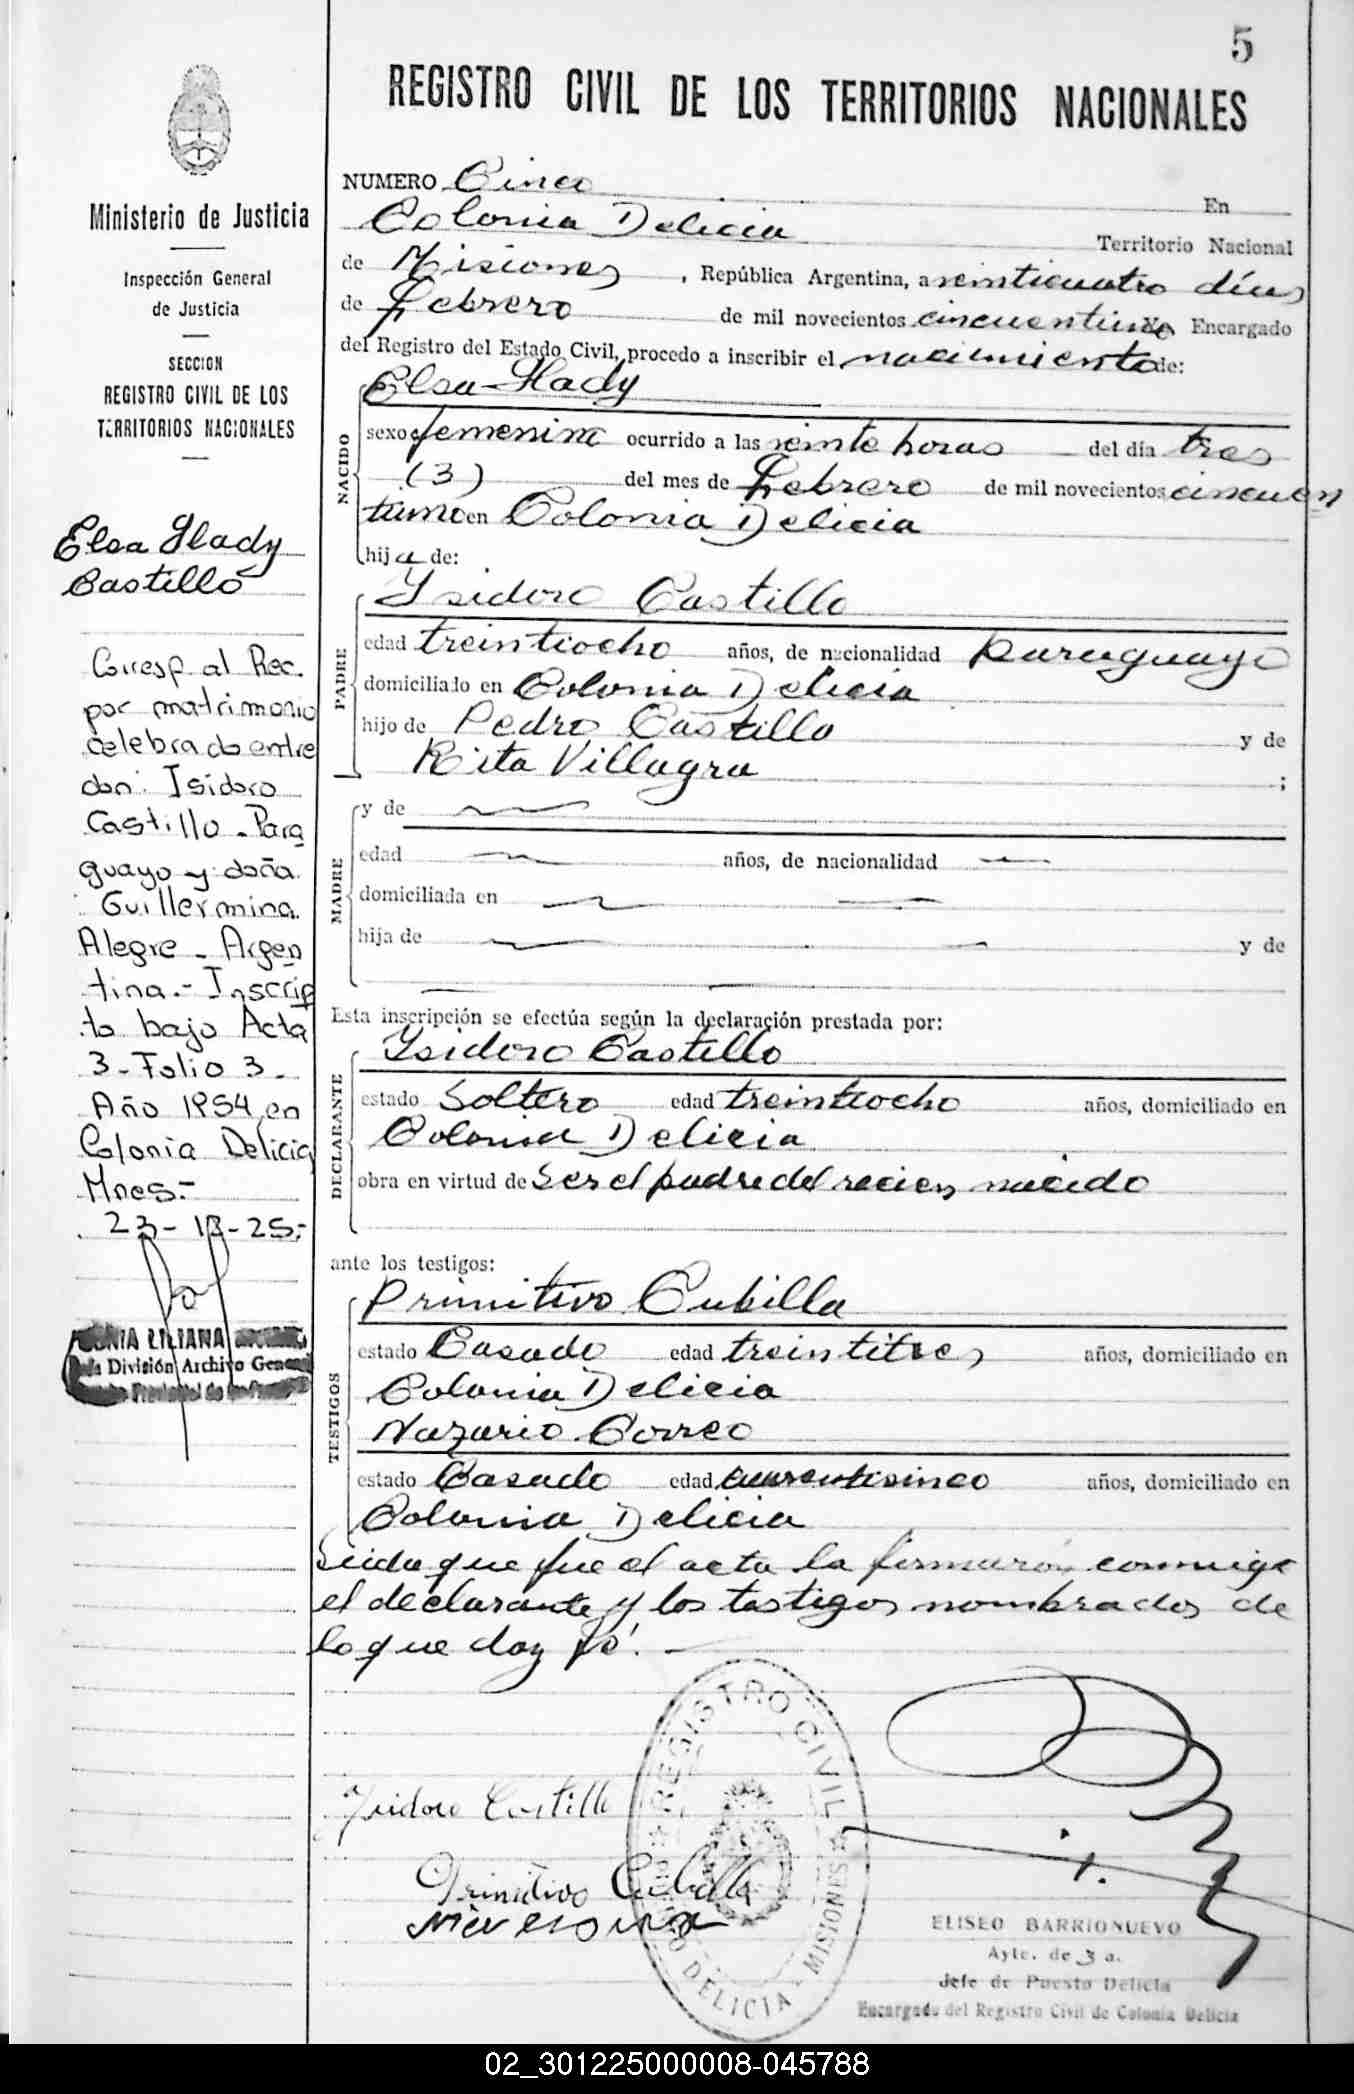 5
REGISTRO CIVIL DE LOS TERRITORIOS NACIONALES
Ministerio de Justicia
Inspección General
de Justicia
SECCION
REGISTRO CIVIL DE LOS
TERRITORIOS NACIONALES
Elsa Glady
Castillo
Corresp. al Rec.
por matrimonio
celebrado entre
don: Isidoro
Castillo - Para
guayo y doña
Guillermina
Alegre - Argen
tina.- Inscrip
to bajo Acta
3 - Folio 3 -
Año 1954 en
Colonia Delicia
Mnes.-
LILIANA
División Archivo
NUMERO Cinco En
Colonia Delicia Territorio Nacional
de Misiones, República Argentina, a veinticuatro días
de Febrero de mil novecientos cincuentiuno Yo Encargado
del Registro del Estado Civil, procedo a inscribir el nacimiento de:
NACIDO
Elsa Glady
sexo femenino ocurrido a las veinte horas del día tres
(3) del mes de Febrero de mil novecientos cincuen
tiuno en Colonia Delicia
hija de:
PADRE
Ysidoro Castillo
edad treintiocho años, de nacionalidad paraguayo
domiciliado en Colonia Delicia
hijo de Pedro Castillo y de
Rita Villagra ;
MADRE
y de
edad años, de nacionalidad
domiciliada en
hija de y de
Esta inscripción se efectúa según la declaración prestada por:
DECLARANTE
Ysidoro Castillo
estado Soltero edad treintiocho años, domiciliado en
Colonia Delicia
obra en virtud de ser el padre del recien nacido
ante los testigos:
TESTIGOS
Primitivo Cubilla
estado Casado edad treintitres años, domiciliado en
Colonia Delicia
Nazario Correo
estado Casado edad cuarentisinco años, domiciliado en
Colonia Delicia
Leida que fue el acta la firmarón conmigo
el declarante y los testigos nombrados de
lo que doy fé. —
Ysidoro Castillo
Primitivo Cubilla
REGISTRO CIVIL
DELICIA - MISIONES
ELISEO BARRIONUEVO
Ayte. de 3 a.
Jefe de Puesto Delicia
Encargado del Registro Civil de Colonia Delicia
02_301225000008-045788